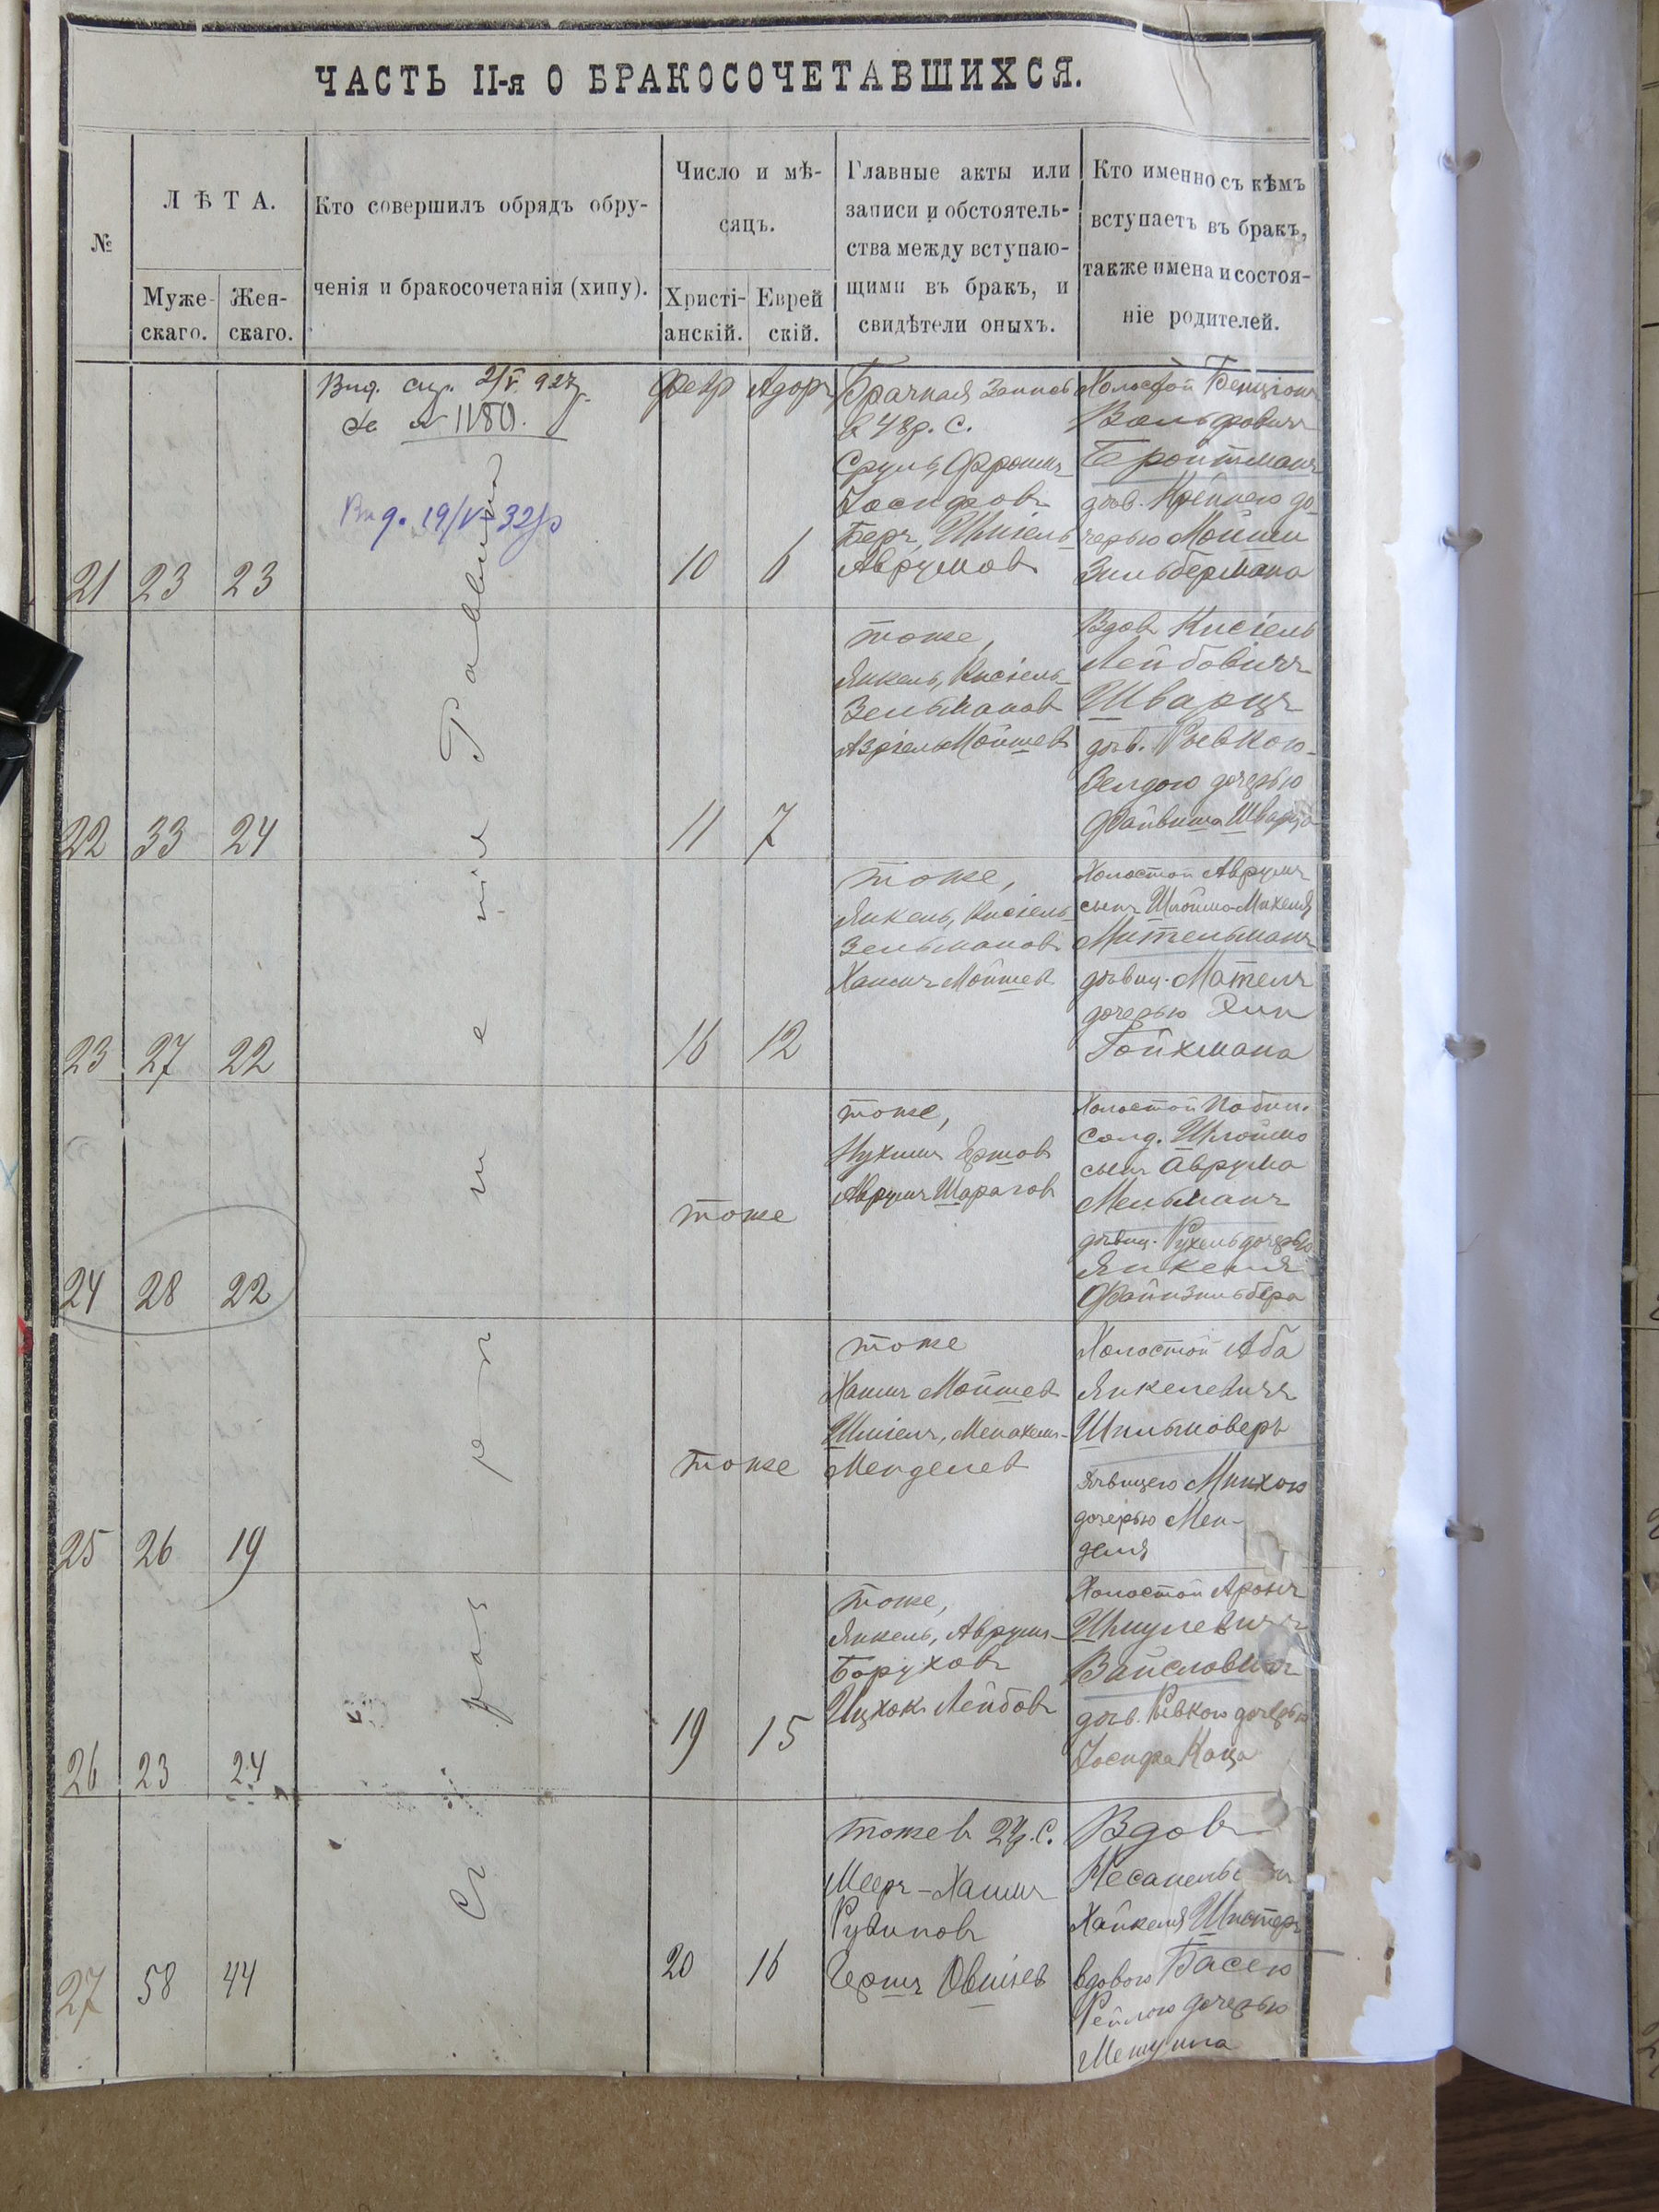 ЧАСТЬ II-я О БРАКОСОЧЕТАВШИХСЯ.
№
ЛѢТА.
Муже-
скаго.
Жен-
скаго.
Кто совершилъ обрядъ обру-
ченія и бракосочетанія (хипу).
Число и мѣ-
сяцъ.
Христі-
анскій.
Еврей
скій.
Главные акты или
записи и обстоятель-
ства между вступаю-
щими въ бракъ, и
свидѣтели оныхъ.
Кто именно съ кѣмъ
вступаетъ въ бракъ,
также имена и состоя-
ніе родителей.
21
23
23
2/V 927
№ 1180.
19/V-32
Съ разрѣшенія Раввина
Февр
Адоръ
10
6
Брачная Запись
в 48р. С.
Сруль, Фроимъ
Іосифовъ
Беръ, Шміель
Аврумовъ
Холостой Бенціонъ
Вольфовичъ
Бройтманъ
дѣв. Крейнею до-
черью Мойши
Зильбермана
22
33
24
11
7
тоже,
Янкель, Кисіель
Зельмановъ
Азріель Мойшевъ
Вдовъ Кисіель
Лейбовичъ
Шварцъ
дѣв. Ривкою-
Велдою дочерью
Файвиша Шварца
23
27
22
16
12
тоже,
Янкель, Кисіель
Зельмановъ
Хаимъ Мойшевъ
Холостой Аврумъ
сынъ Шлоймо-Михеля
Мительманъ
дѣвиц. Мателъ
дочерью
Гойхмана
24
28
22
тоже
тоже,
Нухимъ Ершовъ
Аврумъ Шараговъ
Холостой
Солд. Шлоймо
сынъ Аврума
Мельманъ
дѣвиц. Рухель дочерью
Янкеля
Файнзильбера
25
26
19
тоже
тоже
Хаимъ Мойшевъ
Шміелъ, Менахемъ-
Менделевъ
Холостой Аба
Янкелевичъ
Шильмоверъ
дѣвицею Минхою
дочерью Мен-
деля
26
23
24
19
15
тоже,
Янкель, Аврумъ-
Боруховъ
Ицхокъ Лейбовъ
Холостой Аронъ
Шмулевичъ
Вайсловичъ
дѣв. Ривкою дочерью
Іосифа Каца
27
58
44
20
16
тожев 24р. С.
Мееръ-Хаимъ
Рувиновъ
Гершъ Овшіевъ
Вдовъ
Хайкеля Шистеръ
вдовою Басею
Рейлою дочерью